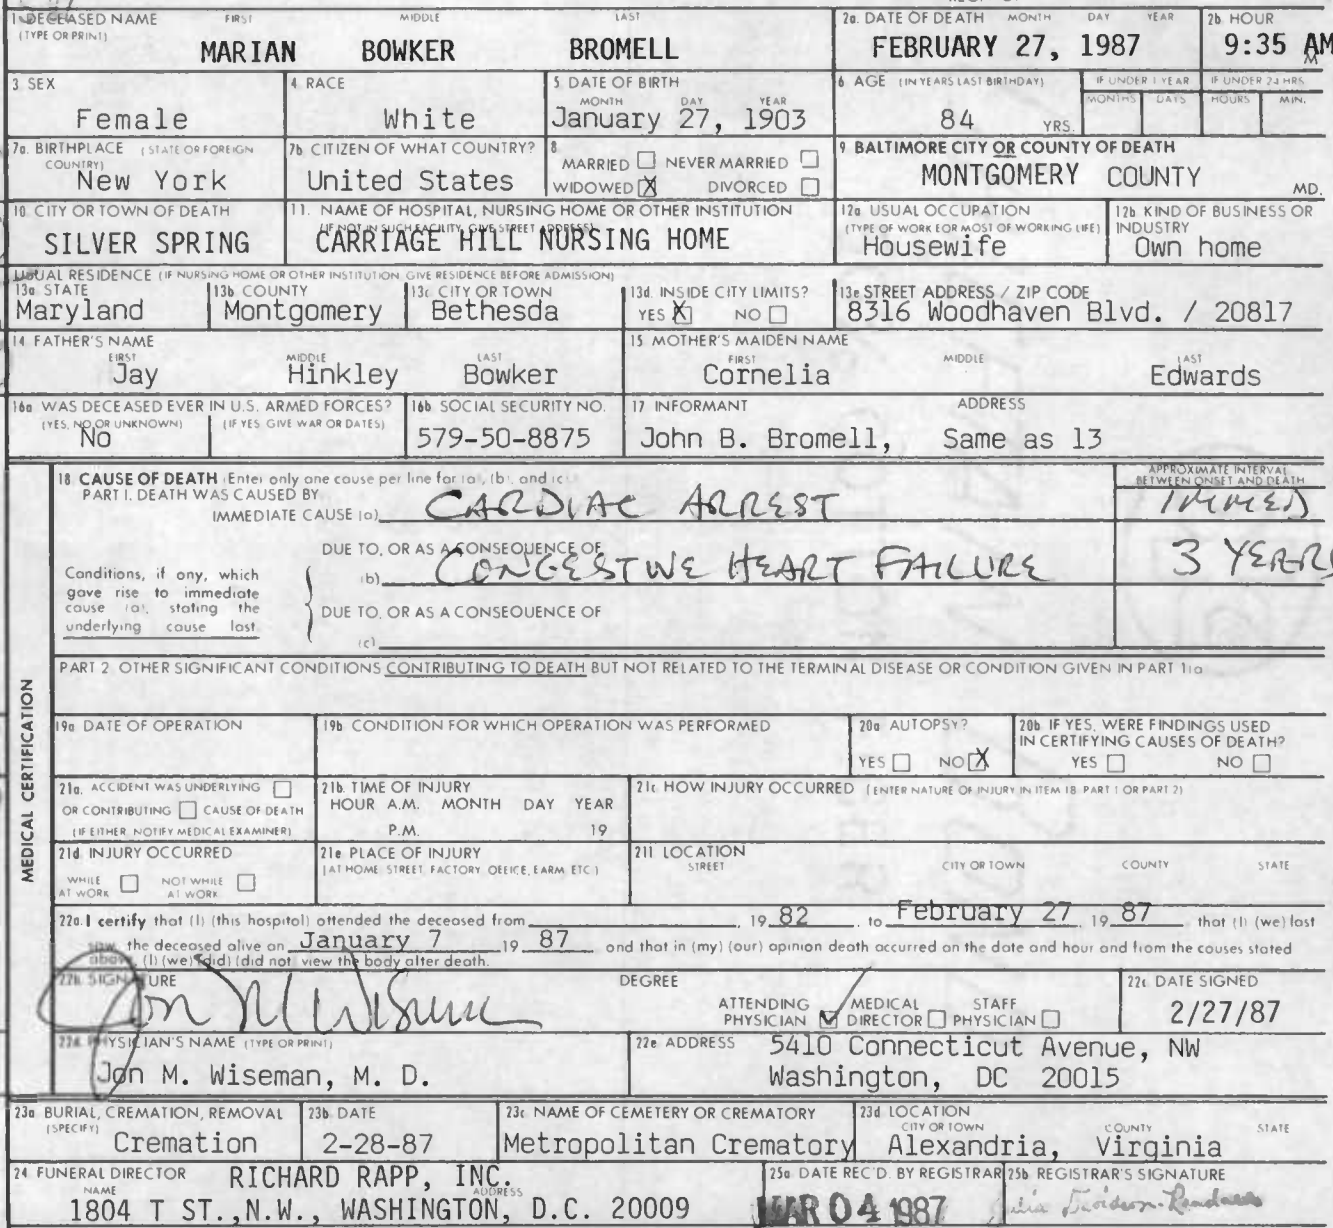 1. DECEASED NAME FIRST MIDDLE LAST
(TYPE OR PRINT)
MARIAN BOWKER BROMELL
2a. DATE OF DEATH MONTH DAY YEAR
FEBRUARY 27, 1987
2b HOUR
9:35 AM
M
3 SEX
Female
4 RACE
White
5 DATE OF BIRTH
MONTH DAY YEAR
January 27, 1903
6 AGE (IN YEARS LAST BIRTHDAY)
84 YRS.
IF UNDER 1 YEAR
MONTHS DAYS
IF UNDER 24 HRS.
HOURS MIN.
7a. BIRTHPLACE (STATE OR FOREIGN
COUNTRY)
New York
7b CITIZEN OF WHAT COUNTRY?
United States
8
MARRIED NEVER MARRIED
WIDOWED X DIVORCED
9 BALTIMORE CITY OR COUNTY OF DEATH
MONTGOMERY COUNTY MD.
10. CITY OR TOWN OF DEATH
SILVER SPRING
11. NAME OF HOSPITAL, NURSING HOME OR OTHER INSTITUTION
(IF NOT IN SUCH FACILITY, GIVE STREET ADDRESS)
CARRIAGE HILL NURSING HOME
12a USUAL OCCUPATION
(TYPE OF WORK FOR MOST OF WORKING LIFE)
Housewife
12b KIND OF BUSINESS OR
INDUSTRY
Own home
USUAL RESIDENCE (IF NURSING HOME OR OTHER INSTITUTION GIVE RESIDENCE BEFORE ADMISSION)
13a. STATE
Maryland
13b COUNTY
Montgomery
13c CITY OR TOWN
Bethesda
13d. INSIDE CITY LIMITS?
YES X NO
13e STREET ADDRESS / ZIP CODE
8316 Woodhaven Blvd. / 20817
14 FATHER'S NAME
FIRST MIDDLE LAST
Jay Hinkley Bowker
15 MOTHER'S MAIDEN NAME
FIRST MIDDLE LAST
Cornelia Edwards
16a WAS DECEASED EVER IN U.S. ARMED FORCES?
(YES, NO OR UNKNOWN) (IF YES, GIVE WAR OR DATES)
No
16b SOCIAL SECURITY NO.
579-50-8875
17 INFORMANT ADDRESS
John B. Bromell, Same as 13
MEDICAL CERTIFICATION
18. CAUSE OF DEATH (Enter only one cause per line for (a), (b), and (c)
PART I. DEATH WAS CAUSED BY
IMMEDIATE CAUSE (a) CARDIAC ARREST
APPROXIMATE INTERVAL
BETWEEN ONSET AND DEATH
IMMED
DUE TO, OR AS A CONSEQUENCE OF
(b) CONGESTIVE HEART FAILURE
3 YEARS
Conditions, if any, which
gave rise to immediate
cause (a), stating the
underlying cause last
DUE TO, OR AS A CONSEQUENCE OF
(c)
PART 2 OTHER SIGNIFICANT CONDITIONS CONTRIBUTING TO DEATH BUT NOT RELATED TO THE TERMINAL DISEASE OR CONDITION GIVEN IN PART 1(a)
19a DATE OF OPERATION
19b CONDITION FOR WHICH OPERATION WAS PERFORMED
20a AUTOPSY?
YES NO X
20b IF YES, WERE FINDINGS USED
IN CERTIFYING CAUSES OF DEATH?
YES NO
21a. ACCIDENT WAS UNDERLYING
OR CONTRIBUTING CAUSE OF DEATH
(IF EITHER, NOTIFY MEDICAL EXAMINER)
21b. TIME OF INJURY
HOUR A.M. MONTH DAY YEAR
P.M. 19
21c HOW INJURY OCCURRED (ENTER NATURE OF INJURY IN ITEM 18 PART 1 OR PART 2)
21d INJURY OCCURRED
WHILE AT WORK NOT WHILE AT WORK
21e PLACE OF INJURY
(AT HOME STREET, FACTORY OFFICE, FARM ETC)
21f LOCATION
STREET CITY OR TOWN COUNTY STATE
22a. I certify that (I) (this hospital) attended the deceased from 19 82 to February 27 19 87 that (I) (we) last
saw the deceased alive on January 7 19 87 and that in (my) (our) opinion death occurred on the date and hour and from the causes stated
above, (I) (we) (did) (did not view the body after death.
22b. SIGNATURE
Jon M Wiseman
DEGREE
ATTENDING PHYSICIAN ✓ MEDICAL DIRECTOR STAFF PHYSICIAN
22c DATE SIGNED
2/27/87
22d. PHYSICIAN'S NAME (TYPE OR PRINT)
Jon M. Wiseman, M. D.
22e ADDRESS
5410 Connecticut Avenue, NW
Washington, DC 20015
23a BURIAL, CREMATION, REMOVAL
(SPECIFY)
Cremation
23b DATE
2-28-87
23c NAME OF CEMETERY OR CREMATORY
Metropolitan Crematory
23d LOCATION
CITY OR TOWN COUNTY STATE
Alexandria, Virginia
24 FUNERAL DIRECTOR RICHARD RAPP, INC.
NAME ADDRESS
1804 T ST.,N.W., WASHINGTON, D.C. 20009
25a DATE REC'D. BY REGISTRAR
MAR 04 1987
25b REGISTRAR'S SIGNATURE